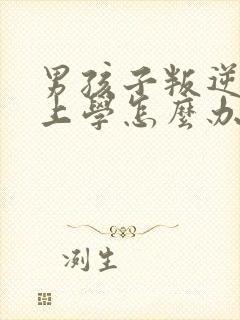 男孩子叛逆
上學怎麼办
冽生